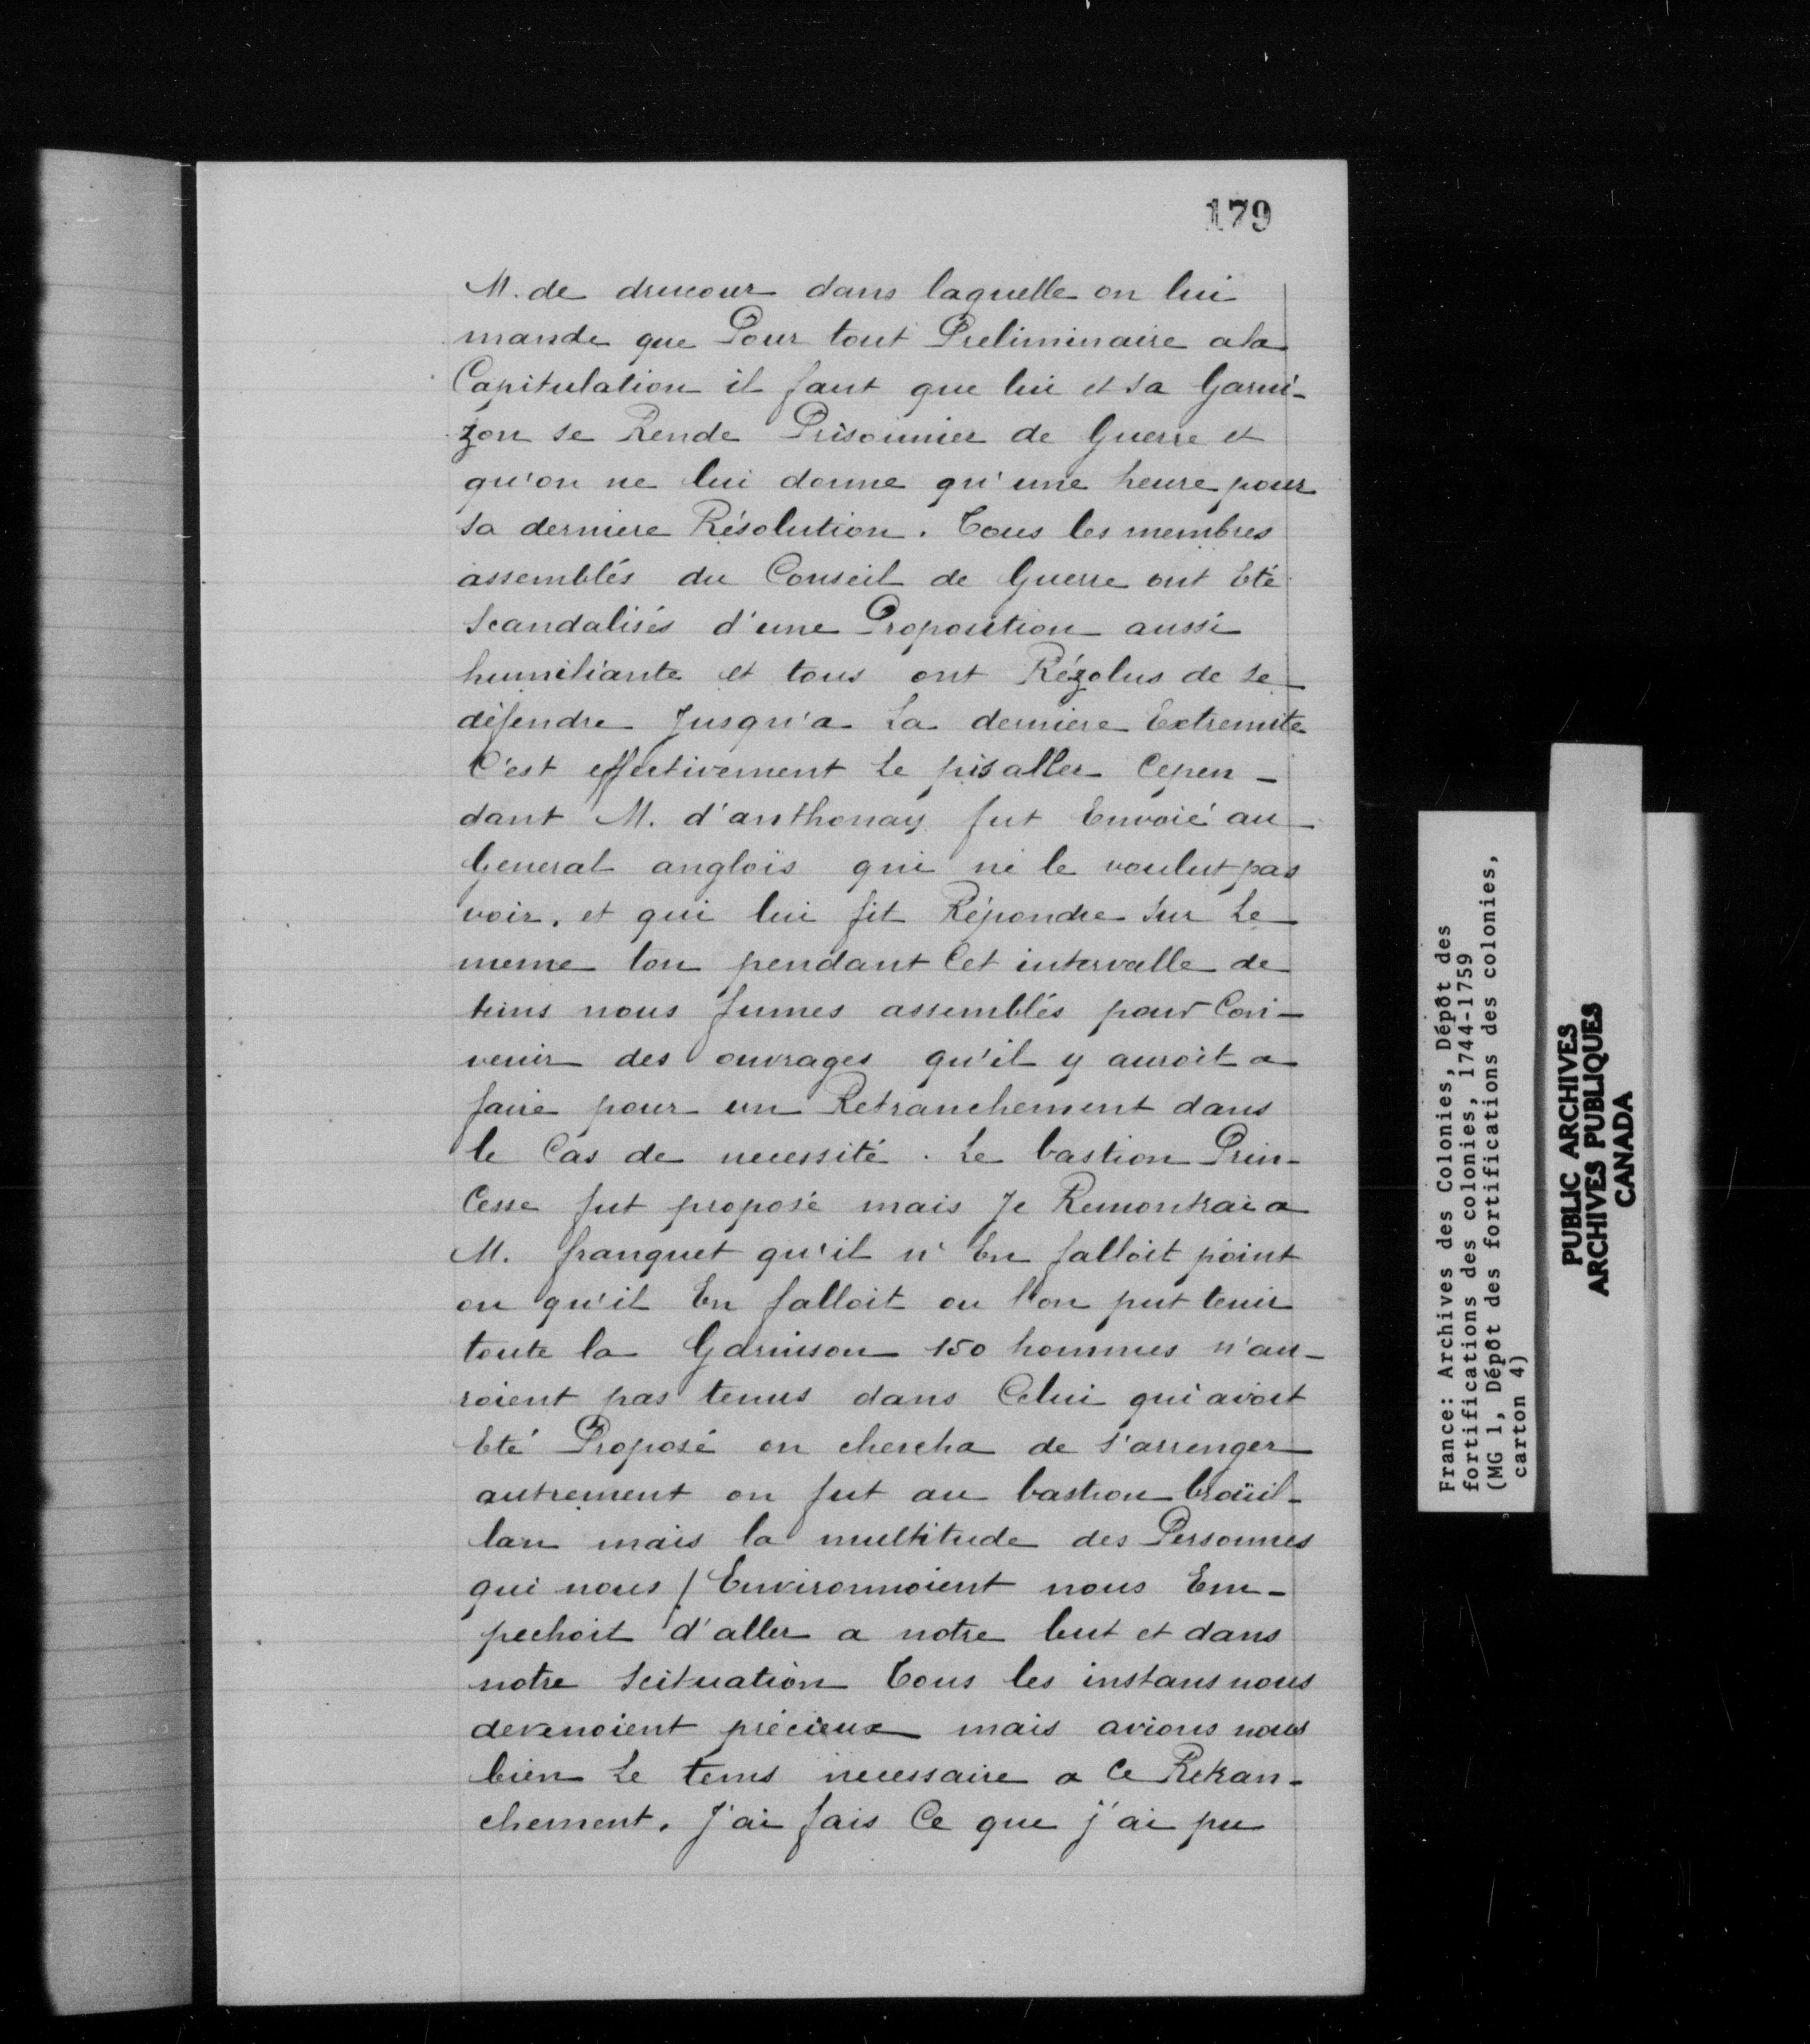 179
M. de drucour dans laquelle on lui
mande que Pour tout Preliminaire a la
Capitulation il faut que lui et sa Garni-
zon se Rende Prisonnier de Guerre et
qu'on ne lui donne qu'une heure pour
sa derniere Résolution. Tous les membres
assemblés du Conseil de Guerre ont Eté
scandalisés d'une Proposition aussi
humiliante et tous ont Rézolus de se
défendre Jusqu'a La derniere Extremite
C'est effectivement Le pis aller Cepen-
dant M. d'anthonay fut Envoié au
General anglois qui ne le voulut pas
voir. et qui lui fit Répondre sur Le
meme ton pendant Cet intervalle de
tems nous fumes assemblés pour Con-
venir des ouvrages qu'il y auroit a
faire pour un Retranchement dans
le Cas de necessité. Le bastion Prin-
Cesse fut proposé mais Je Remontrai a
M. franquet qu'il n'En falloit point
ou qu'il En falloit ou l'on put tenir
toute la Garnison 150 hommes n'au-
roient pas tenus dans Celui qui avoit
Eté Proposé on chercha de s'arrenger
autrement on fut au bastion broüil-
lan mais la multitude des Personnes
qui nous / Environnoient nous Em-
pechoit d'aller a notre but et dans
notre Scituation Tous les instans nous
devenoient précieux mais avions nous
bien Le tems necessaire a Ce Retran-
chement. J'ai fais Ce que j'ai pu
France: Archives des Colonies, Dépôt des
fortifications des colonies, 1744-1759
(MG 1, Dépôt des fortifications des colonies,
carton 4)
PUBLIC ARCHIVES
ARCHIVES PUBLIQUES
CANADA